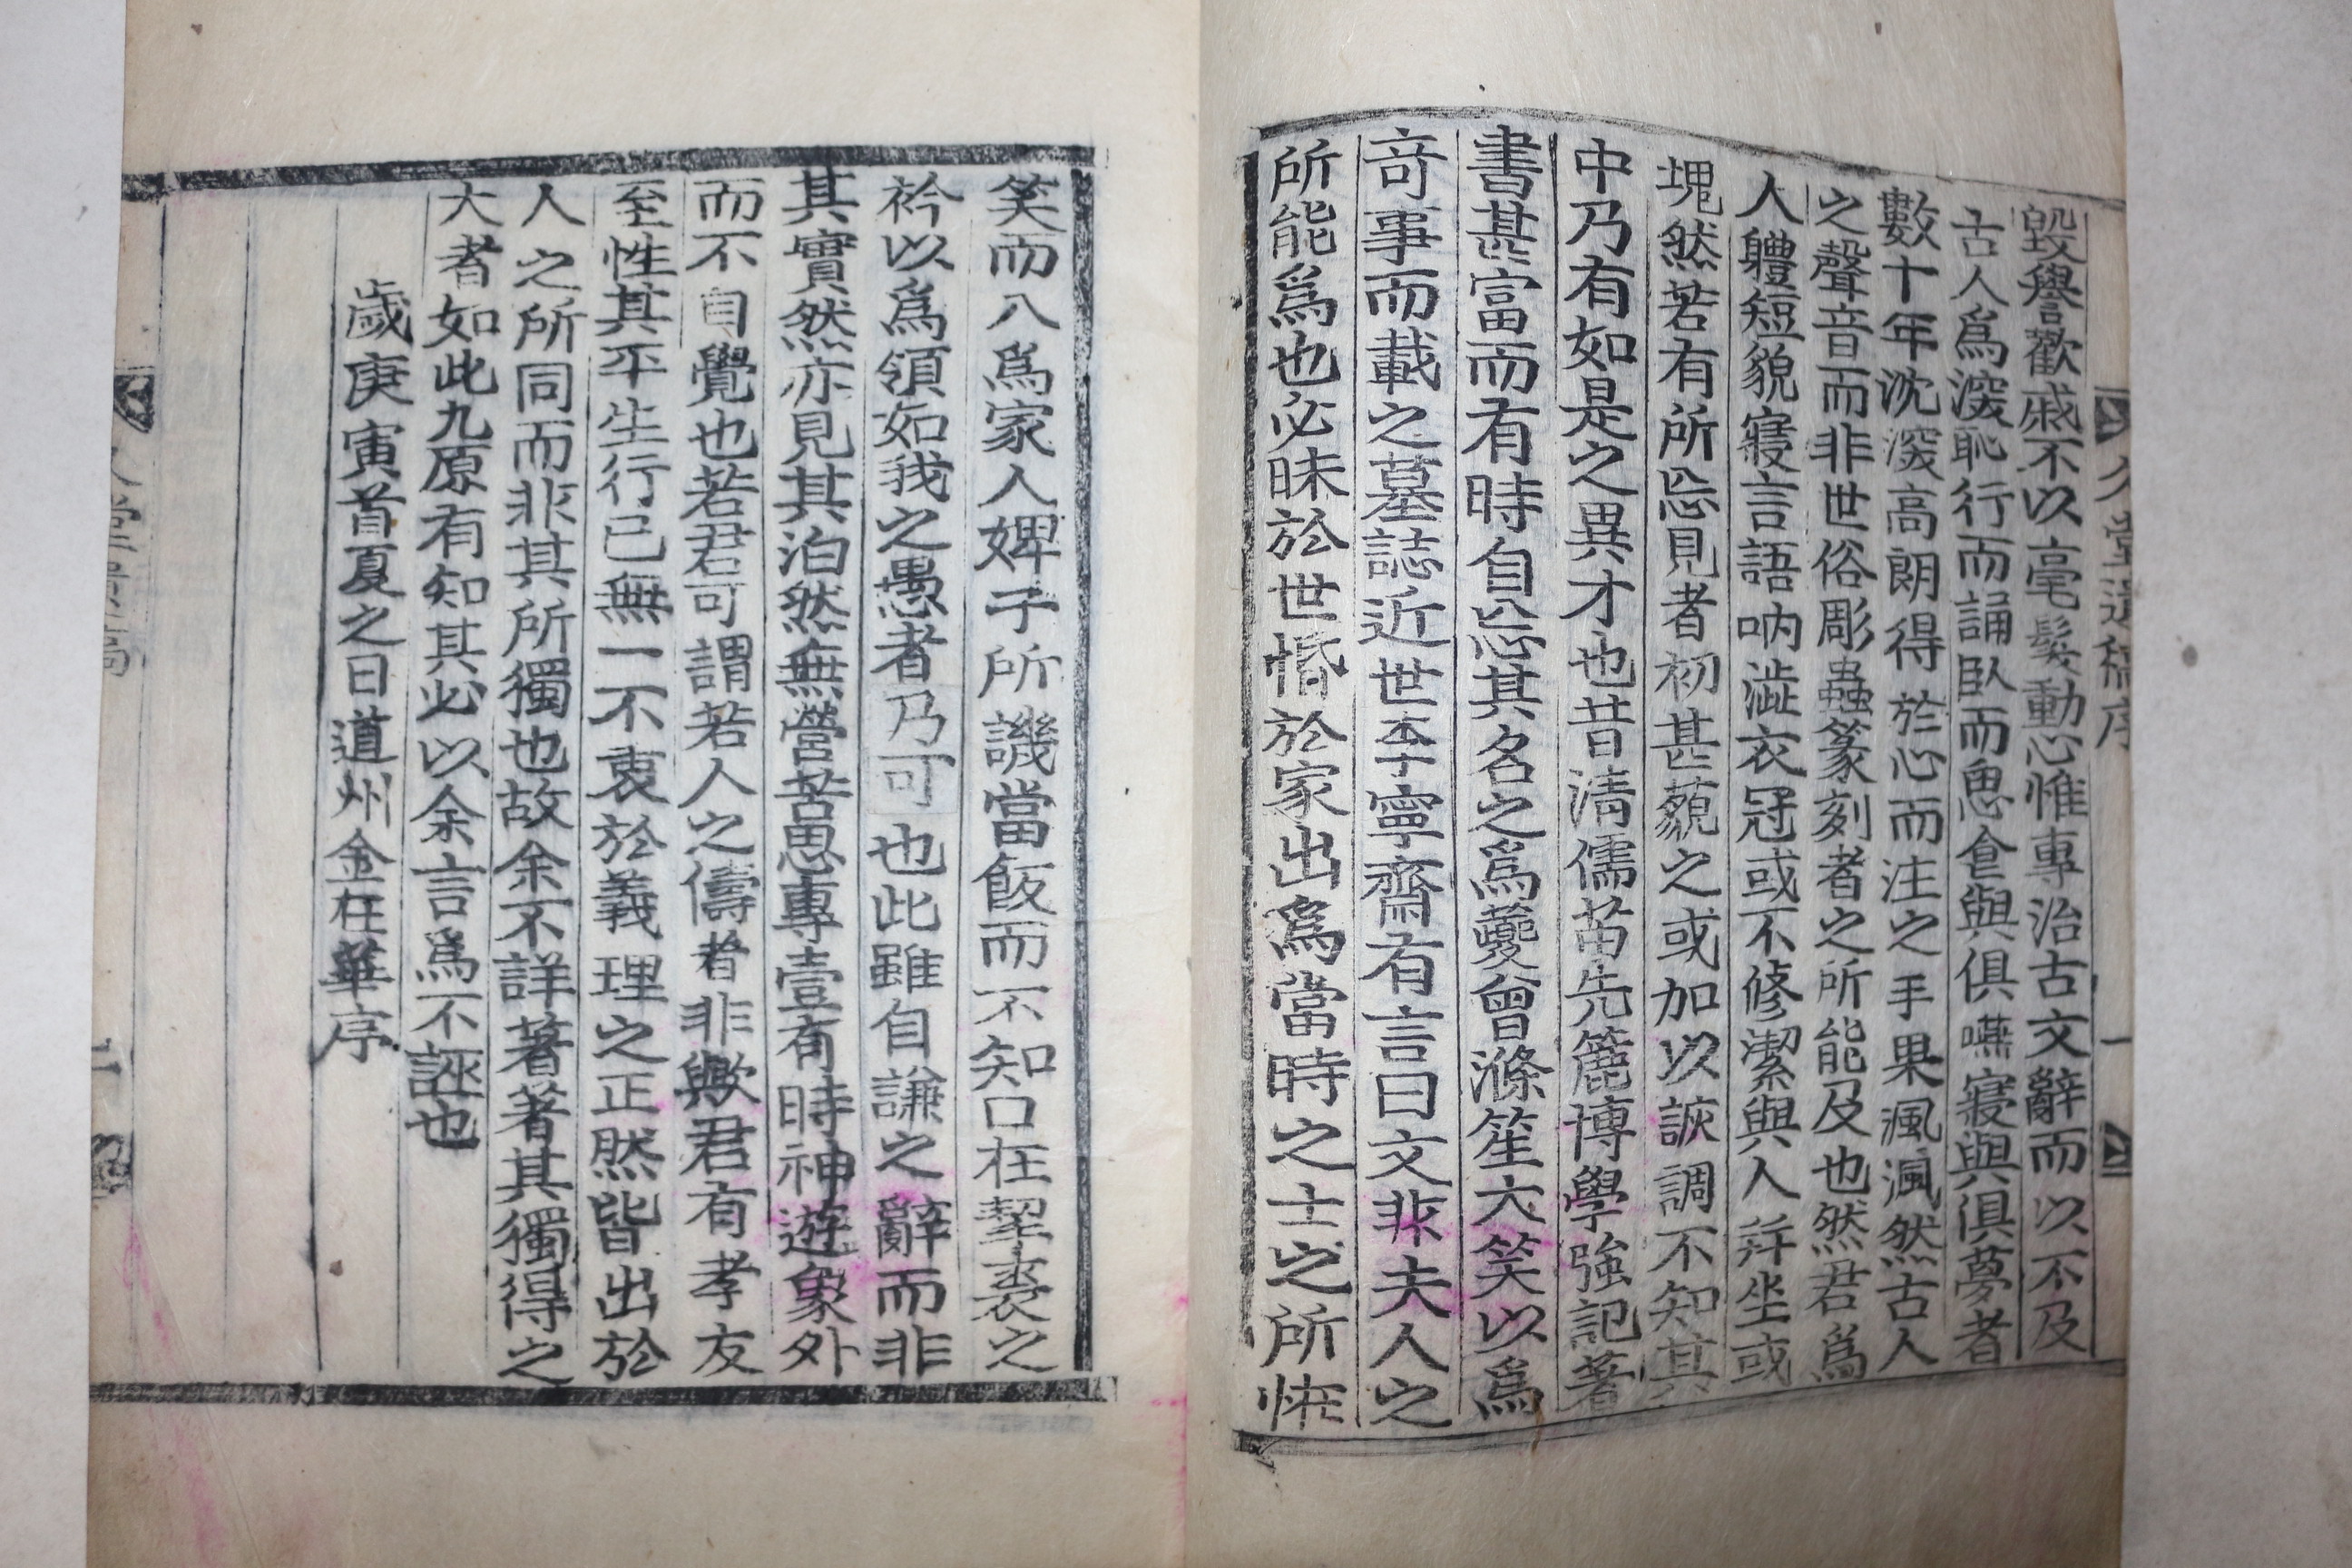 久堂遺稿序
一
毀譽歡戚不以毫髮動心惟專治古文辭而以不及
古人爲深恥行而誦臥而思食與俱嚥寢與俱夢者
數十年沈深高朗得於心而注之手果渢渢然古人
之聲音而非世俗彫蟲篆刻者之所能及也然君爲
人軆短貌寢言語吶澁衣冠或不修潔與人並坐或
塊然若有所忘見者初甚藐之或加以詼調不知其
中乃有如是之異才也昔淸儒苗先簏博學強記著
書甚富而有時自忘其名之爲夔曾滌笙大笑以爲
奇事而載之墓誌近世李寧齋有言曰文非夫人之
所能爲也必昧於世惛於家出爲當時之士之所恠
笑而入爲家人婢子所譏當飯而不知口在挈裘之
衿以爲領如我之愚者乃可也此雖自謙之辭而非
其實然亦見其泊然無營苦思專壹有時神遊象外
而不自覺也若君可謂若人之儔者非歟君有孝友
至性其平生行己無一不衷於義理之正然皆出於
人之所同而非其所獨也故余不詳著著其獨得之
大者如此九原有知其必以余言爲不誣也
歲庚寅首夏之日道州金在華序
久堂遺稿
二